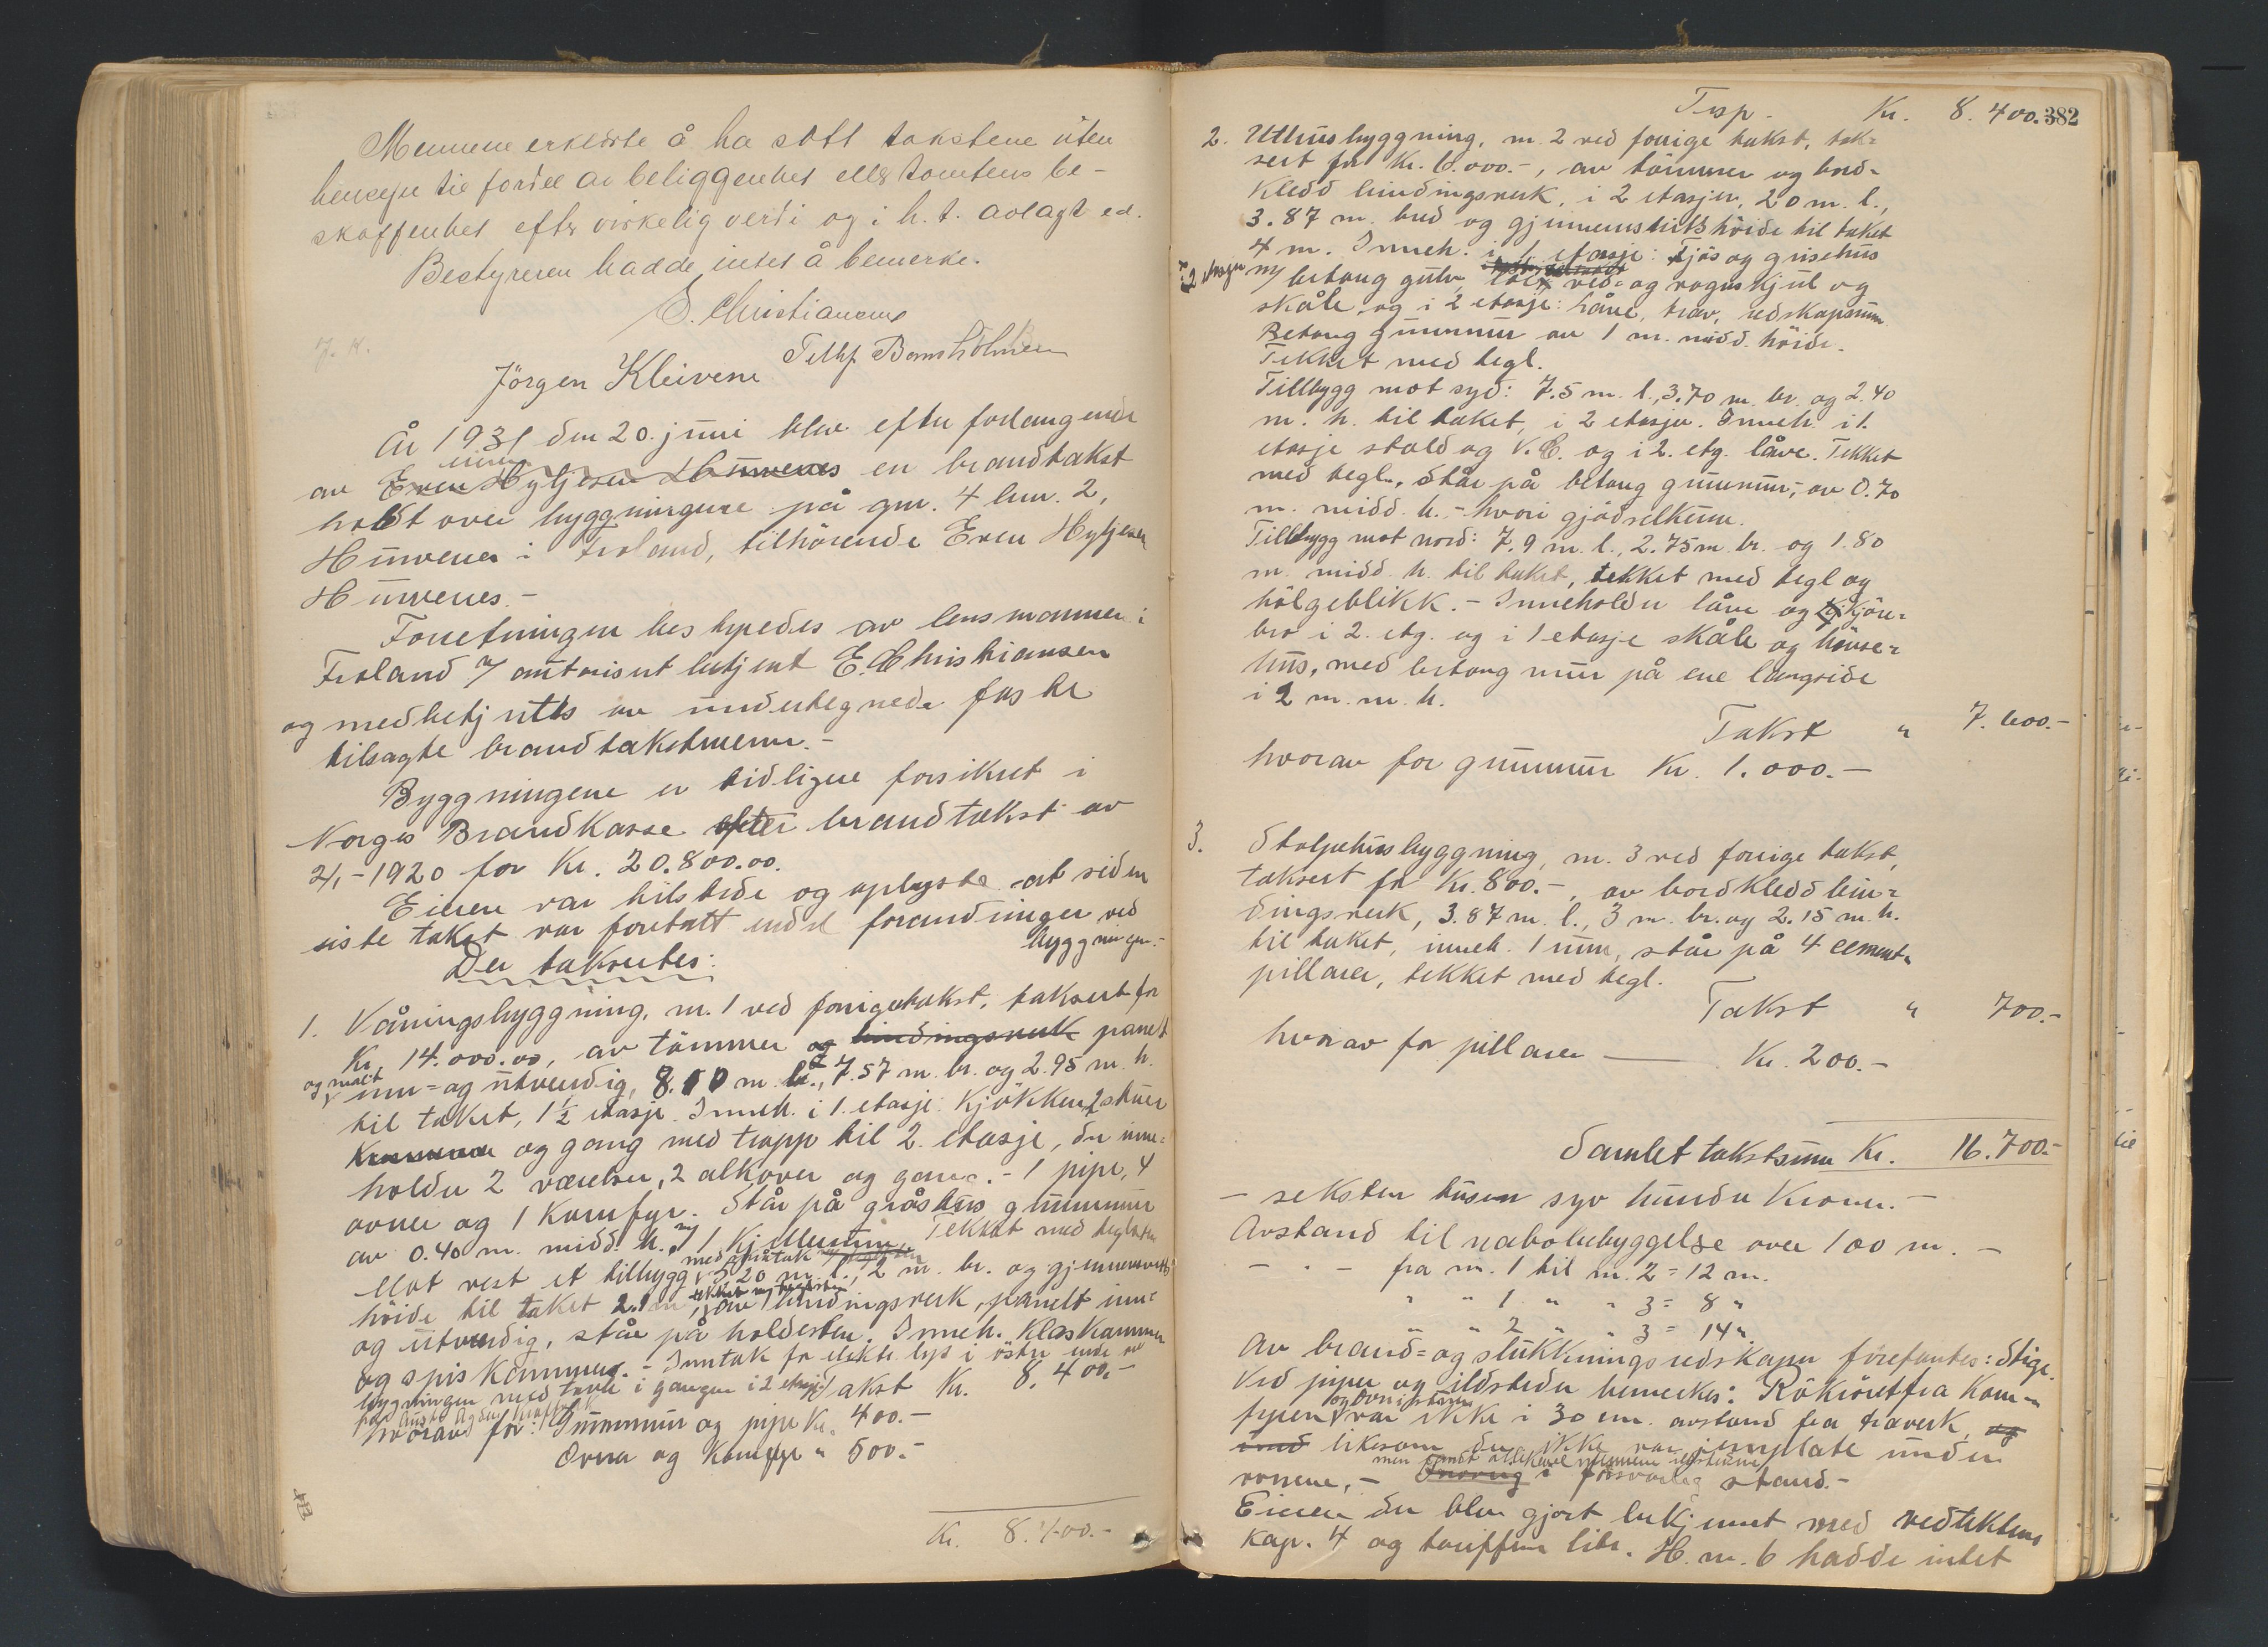 Mennene erklærte å ha satt takstene uten
hensyn til fordel av beliggenhet eller tomtens be-
skaffenhet efter virkelig verdi og i h. t. avlagt ed.
Bestyreren hadde intet å bemerke.
E. Christiansen
J. K.
Jörgen Kleivene
År 1931 den 20. juni blev efter forlangende
av eieren Even Hyljesen Hurvenes en brandtakst
holdt over byggningene på gnr. 4 bnr. 2,
Hurvenes i Froland, tilhörende Even Hyljesen
Hurvenes.-
Forretningen bestyredes av lensmannen i
Froland v/ autorisert betjent E. Christiansen
og medbetjentes av undertegnede faste
tilsagte brandtakstmenn.-
Byggningene er tidligere forsikret i
Norges Brandkasse efter brandtakst av
2/1-1920 for Kr. 20.800.00.
Eieren var tilstede og oplyste at siden
siste takst var foretatt endel forandringer ved
byggningen.-
Der takseertes:
1. Våningsbyggning, nr. 1 ved forrige takst, taksert for
Kr. 14.000.00, av tömmer og bindingsverk panelt
og malt inn- og utvendig, 8.10 m. l., 7.57 m. br. og 2.95 m. h.
til taket, 1½ etasje. Inneh. i 1. etasje: Kjökken, 2 stuer
Kammer og gang med trapp til 2. etasje, der inne-
holder 2 værelser, 2 alkover og gang.- 1 pipe, 4
ovner og 1 komfyr. Står på gråstens grunnmur
av 0.40 m. midd. h. m/ 1 kjellerrum. Tekket med teglsten
Mot vest et tilbygg med skråtak 5.20 m. l., 2 m. br. og gjennemsnitts
höide til taket 2.1 m., tekket m/ teglsten, av bindingsverk, panelt inn-
og utvendig, står på holdesten. Inneh. Klæskammer
og spiskammer.- Inntak for elektr. lys i östre ende av
bygningen med tavle i gangen i 2 etasje. Takst Kr. 8.400.-
hvorav for: Grunnmur og pipe Kr. 400.-
Ovner og Komfyr " 500.-
Kr. 8.400.-
382
Trsp. Kr. 8.400.
2. Uthusbyggning, nr. 2 ved forrige takst, tak-
sert for Kr. 6.000.-, av tömmer og bord-
kledd bindingsverk, i 2 etasjer, 20 m. l.,
3.87 m. bred og gjennemsnittshöide til taket
4 m. Inneh. i 1. etasje: Fjös og grisehus
i 2 etasjer m/ betong gulv, ved- og vognskjul og
skåle, og i 2 etasje: låve, trev, redskapsrum
Betong grunnmur av 1 m. midd. höide.
Tekket med tegl.
Tillbygg mot syd: 7.5 m. l., 3.70 m. br. og 2.40
m. h. til taket, i 2 etasjer. Inneh. i 1.
etasje stald og V.C. og i 2. etg. låve. Tekket
med tegl, Står på betong grunnmur, av 0.70
m. midd. h. - hvori gjödselkum.
Tillbygg mot nord: 7.9 m. l., 2.75 m. br. og 1.80
m. midd. h. til taket, tekket med tegl og
bölgeblikk.- Inneholder låve og kjöre-
bro i 2. etg. og i 1 etasje skåle og hönse-
hus, med betong mur på ene langside
i 2 m. m. h.
Takst " 7.600.-
hvorav for grunnmur Kr. 1.000.-
3. Stolpehusbyggning, nr. 3 ved forrige takst,
taksert for Kr. 800.-, av bordkledd bin-
dingsverk, 3.87 m. l., 3 m. br. og 2.15 m. h.
til taket, inneh. 1 rum, står på 4 cement-
pillarer, tekket med tegl.
Takst " 700.-
hvorav for pillarer Kr. 200.-
Samlet takstsum Kr. 16.700.-
- seksten tusen syv hundre Kroner.-
Avstand til nabobebyggelse over 100 m. -
- " - fra nr. 1 til nr. 2 = 12 m.
" " 1 " " 3 = 8 "
" " 2 " " 3 = 14 "
Av brand- og slukkningsredskaper forefantes: Stige.
Ved piper og ildsteder bemerkes: Rökröret fra Kom-
fyren og ovn i stuen var ikke i 30 cm. avstand fra træverk, og
likesom der ikke var jernplate under
ovnene, - men forsvarlig stand.-
Eieren der blev gjort bekjennt med vedtektens
Kap. 4 og tariffens litr. H. nr. 6 hadde intet